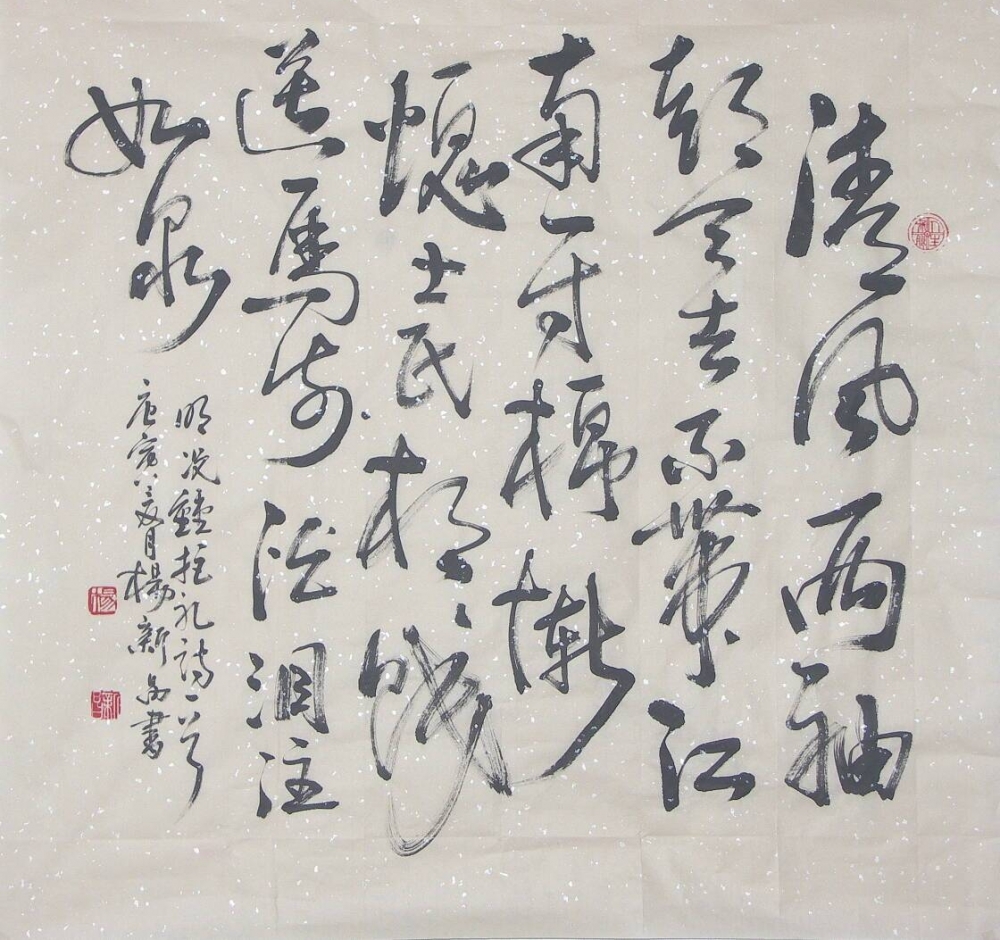 清风两袖
朝天去不带江
南一寸棉惭
愧士民相饯
送马前洒泪注
如泉
明况鍾拒礼诗一首
庚寅八月楊新書